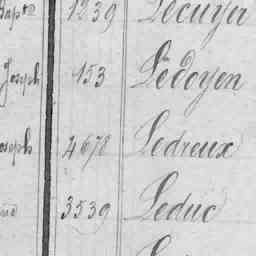 1239 Lecuyer
Joseph 153 Ledoyen
4678 Ledreux
3539 Leduc